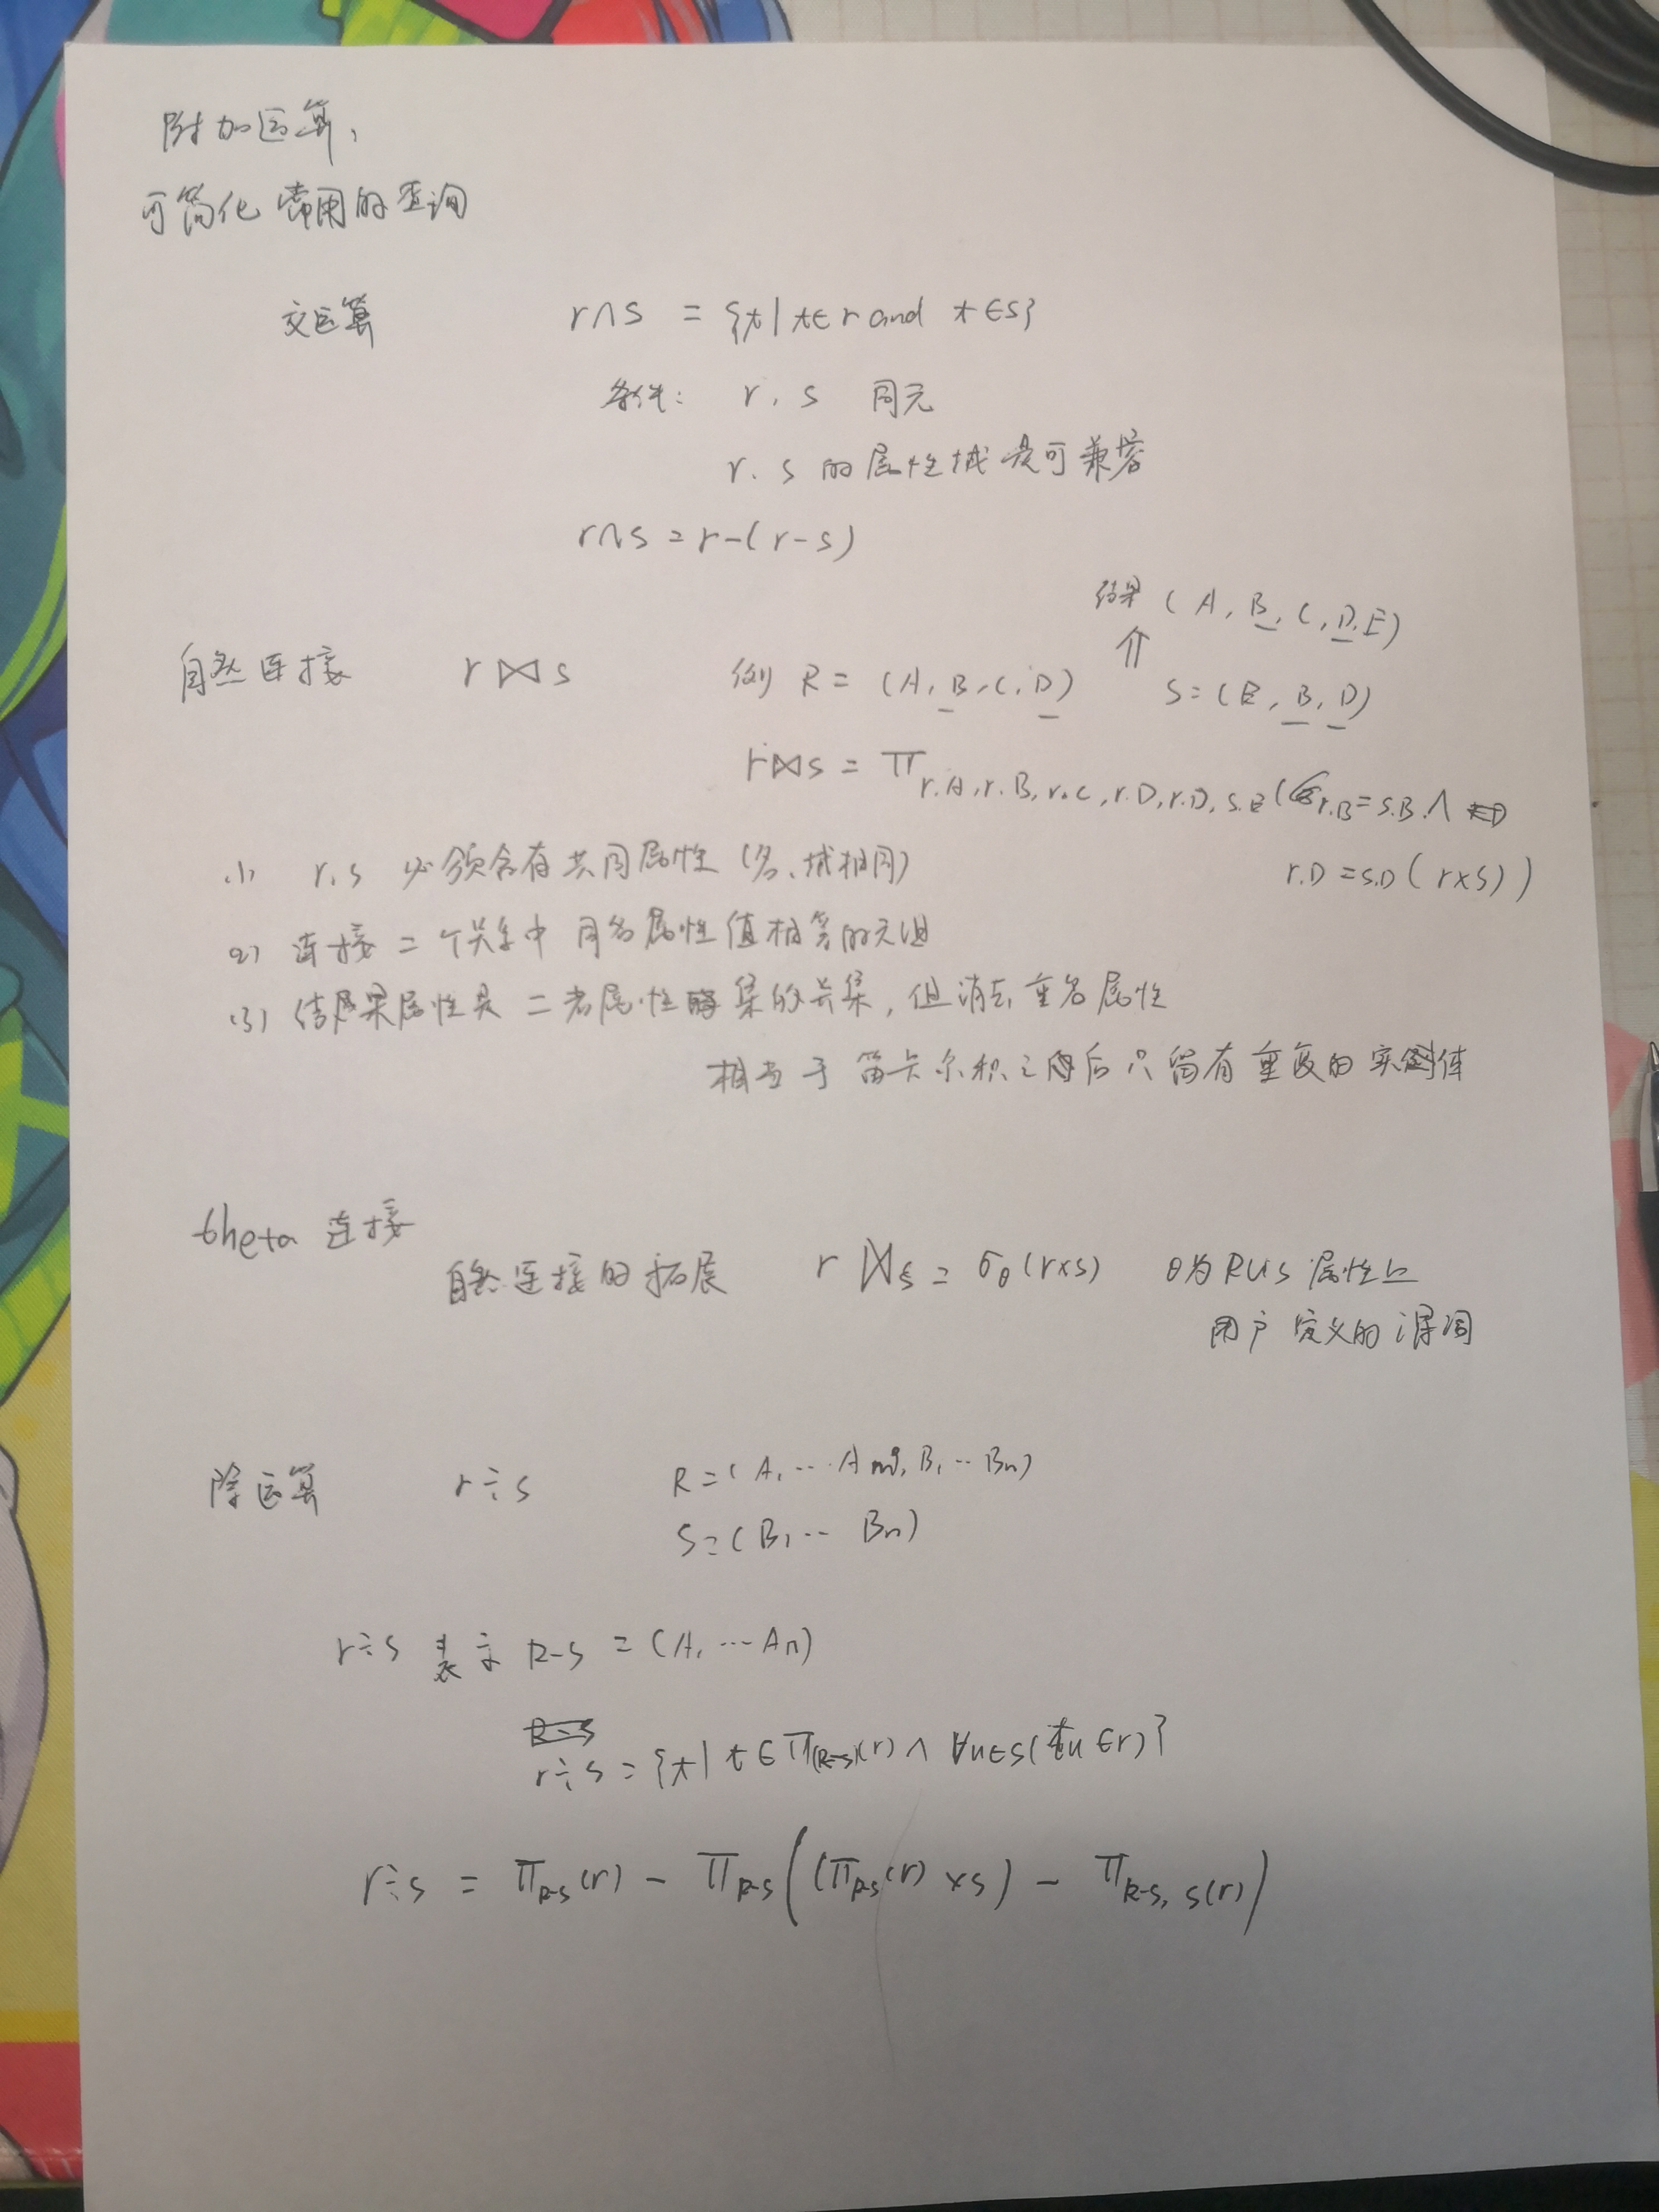 附加运算,
可简化常用的查询
交运算 r∩s = {t|t∈r and t∈s}
条件: r, s 同元
r、s 的属性域是可兼容
r∩s = r-(r-s)
结果 (A, B, C, D, E)
⇑
自然连接 r⋈s 例 R = (A, B, C, D) S = (E, B, D)
r⋈s = π r.A, r.B, r.C, r.D, r.D, s.E (σ r.B=s.B ∧
r.D = s.D (r×s))
(1) r, s 必须含有共同属性 (名、域相同)
(2) 连接二个关系中同名属性值相等的元组
(3) 结果属性是二者属性集的并集, 但消去重名属性
相当于笛卡尔积之后只留有重复的实体
theta 连接
自然连接的拓展 r⋈s = σθ(r×s) θ为R∪S 属性上
用户定义的谓词
除运算 r÷s R = (A₁ … Am, B₁ … Bn)
S = (B₁ … Bn)
r÷s 表示 R-S = (A₁ … An)
R-S
r÷s = {t| t∈π(R-S)(r) ∧ ∀u∈s(tu∈r)}
r÷s = πR-S(r) - πR-S((πR-S(r)×s) - πR-S, S(r))